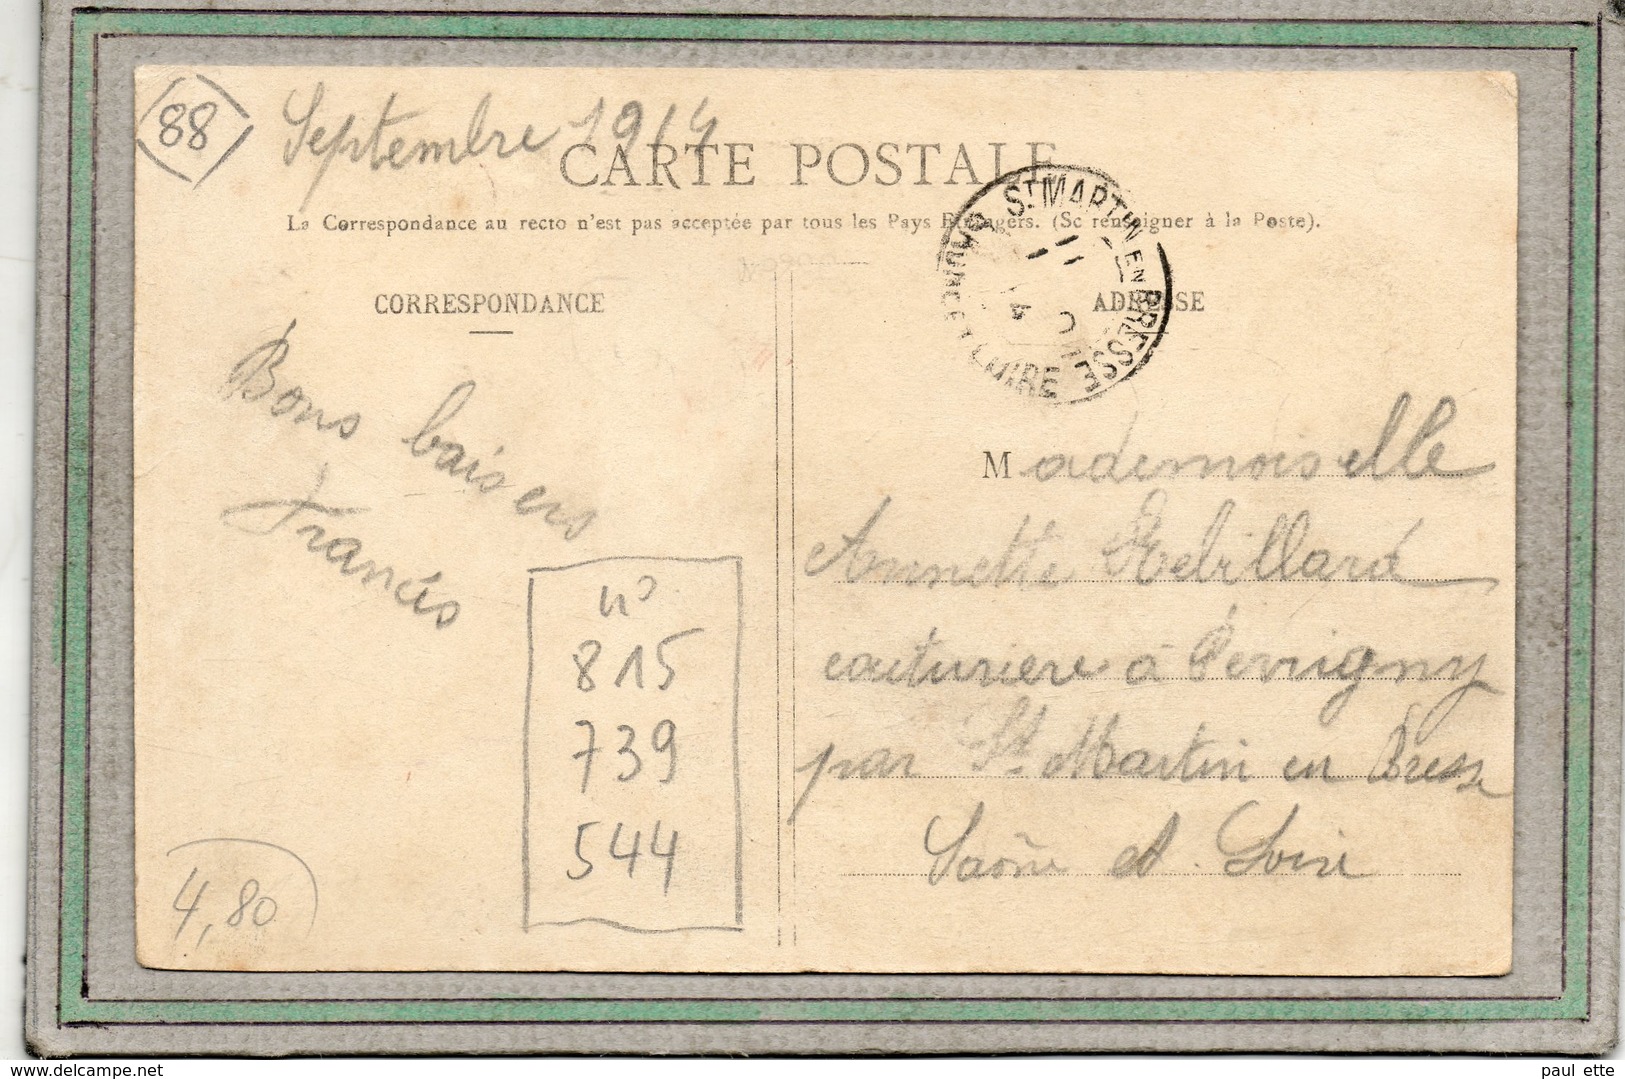 88
Septembre 1914
CARTE POSTALE
La Correspondance au recto n'est pas acceptée par tous les Pays Etrangers. (Se renseigner à la Poste).
ST MARTIN EN BRESSE
SAONE ET LOIRE
CORRESPONDANCE
ADRESSE
Bons baisers
Francis
n°
815
739
544
4,80
Mademoiselle
Annette Rebillard
couturiere à Perrigny
par St Martin en Bresse
Saône et Loire
paul ette